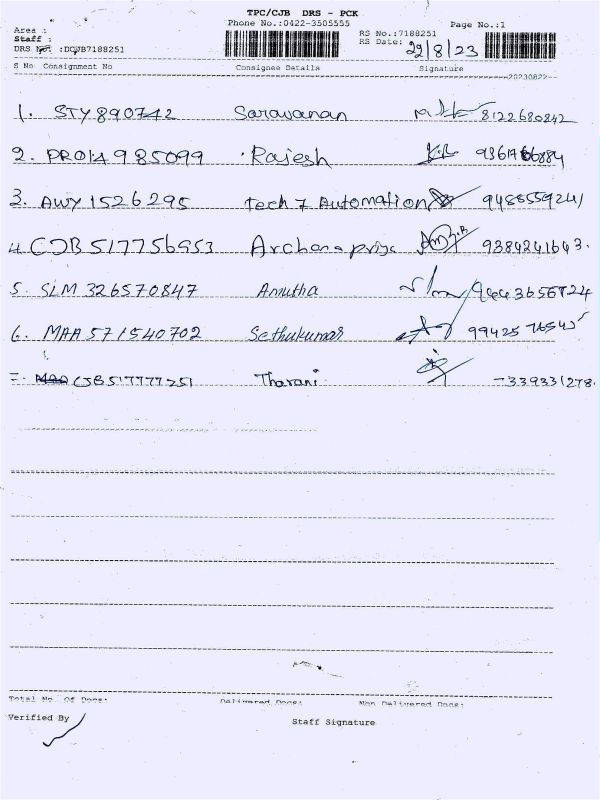 TPC/CJB DRS - PCK
Phone No.:0422-3505555 Page No.:1
Area :
Staff : RS No.:7188251
DRS No :DCJB7188251 RS Date: 29/8/23
S No Consignment No Consignee Details Signature
20230822
1. STY890742 Saravanan 8122680842
2. PRO14985099 Rajesh
3. AWY1526295 Tech 7 Automation 9488559241
4. CJB517756953 Archana priya 9384241643.
5. SLM 326570847 Amutha
6. MAA 571540702 Sethukumar
7. CJB517777251 Tharani 7339331278.
Total No Of Docs: Delivered Docs: Non Delivered Docs:
Verified By Staff Signature